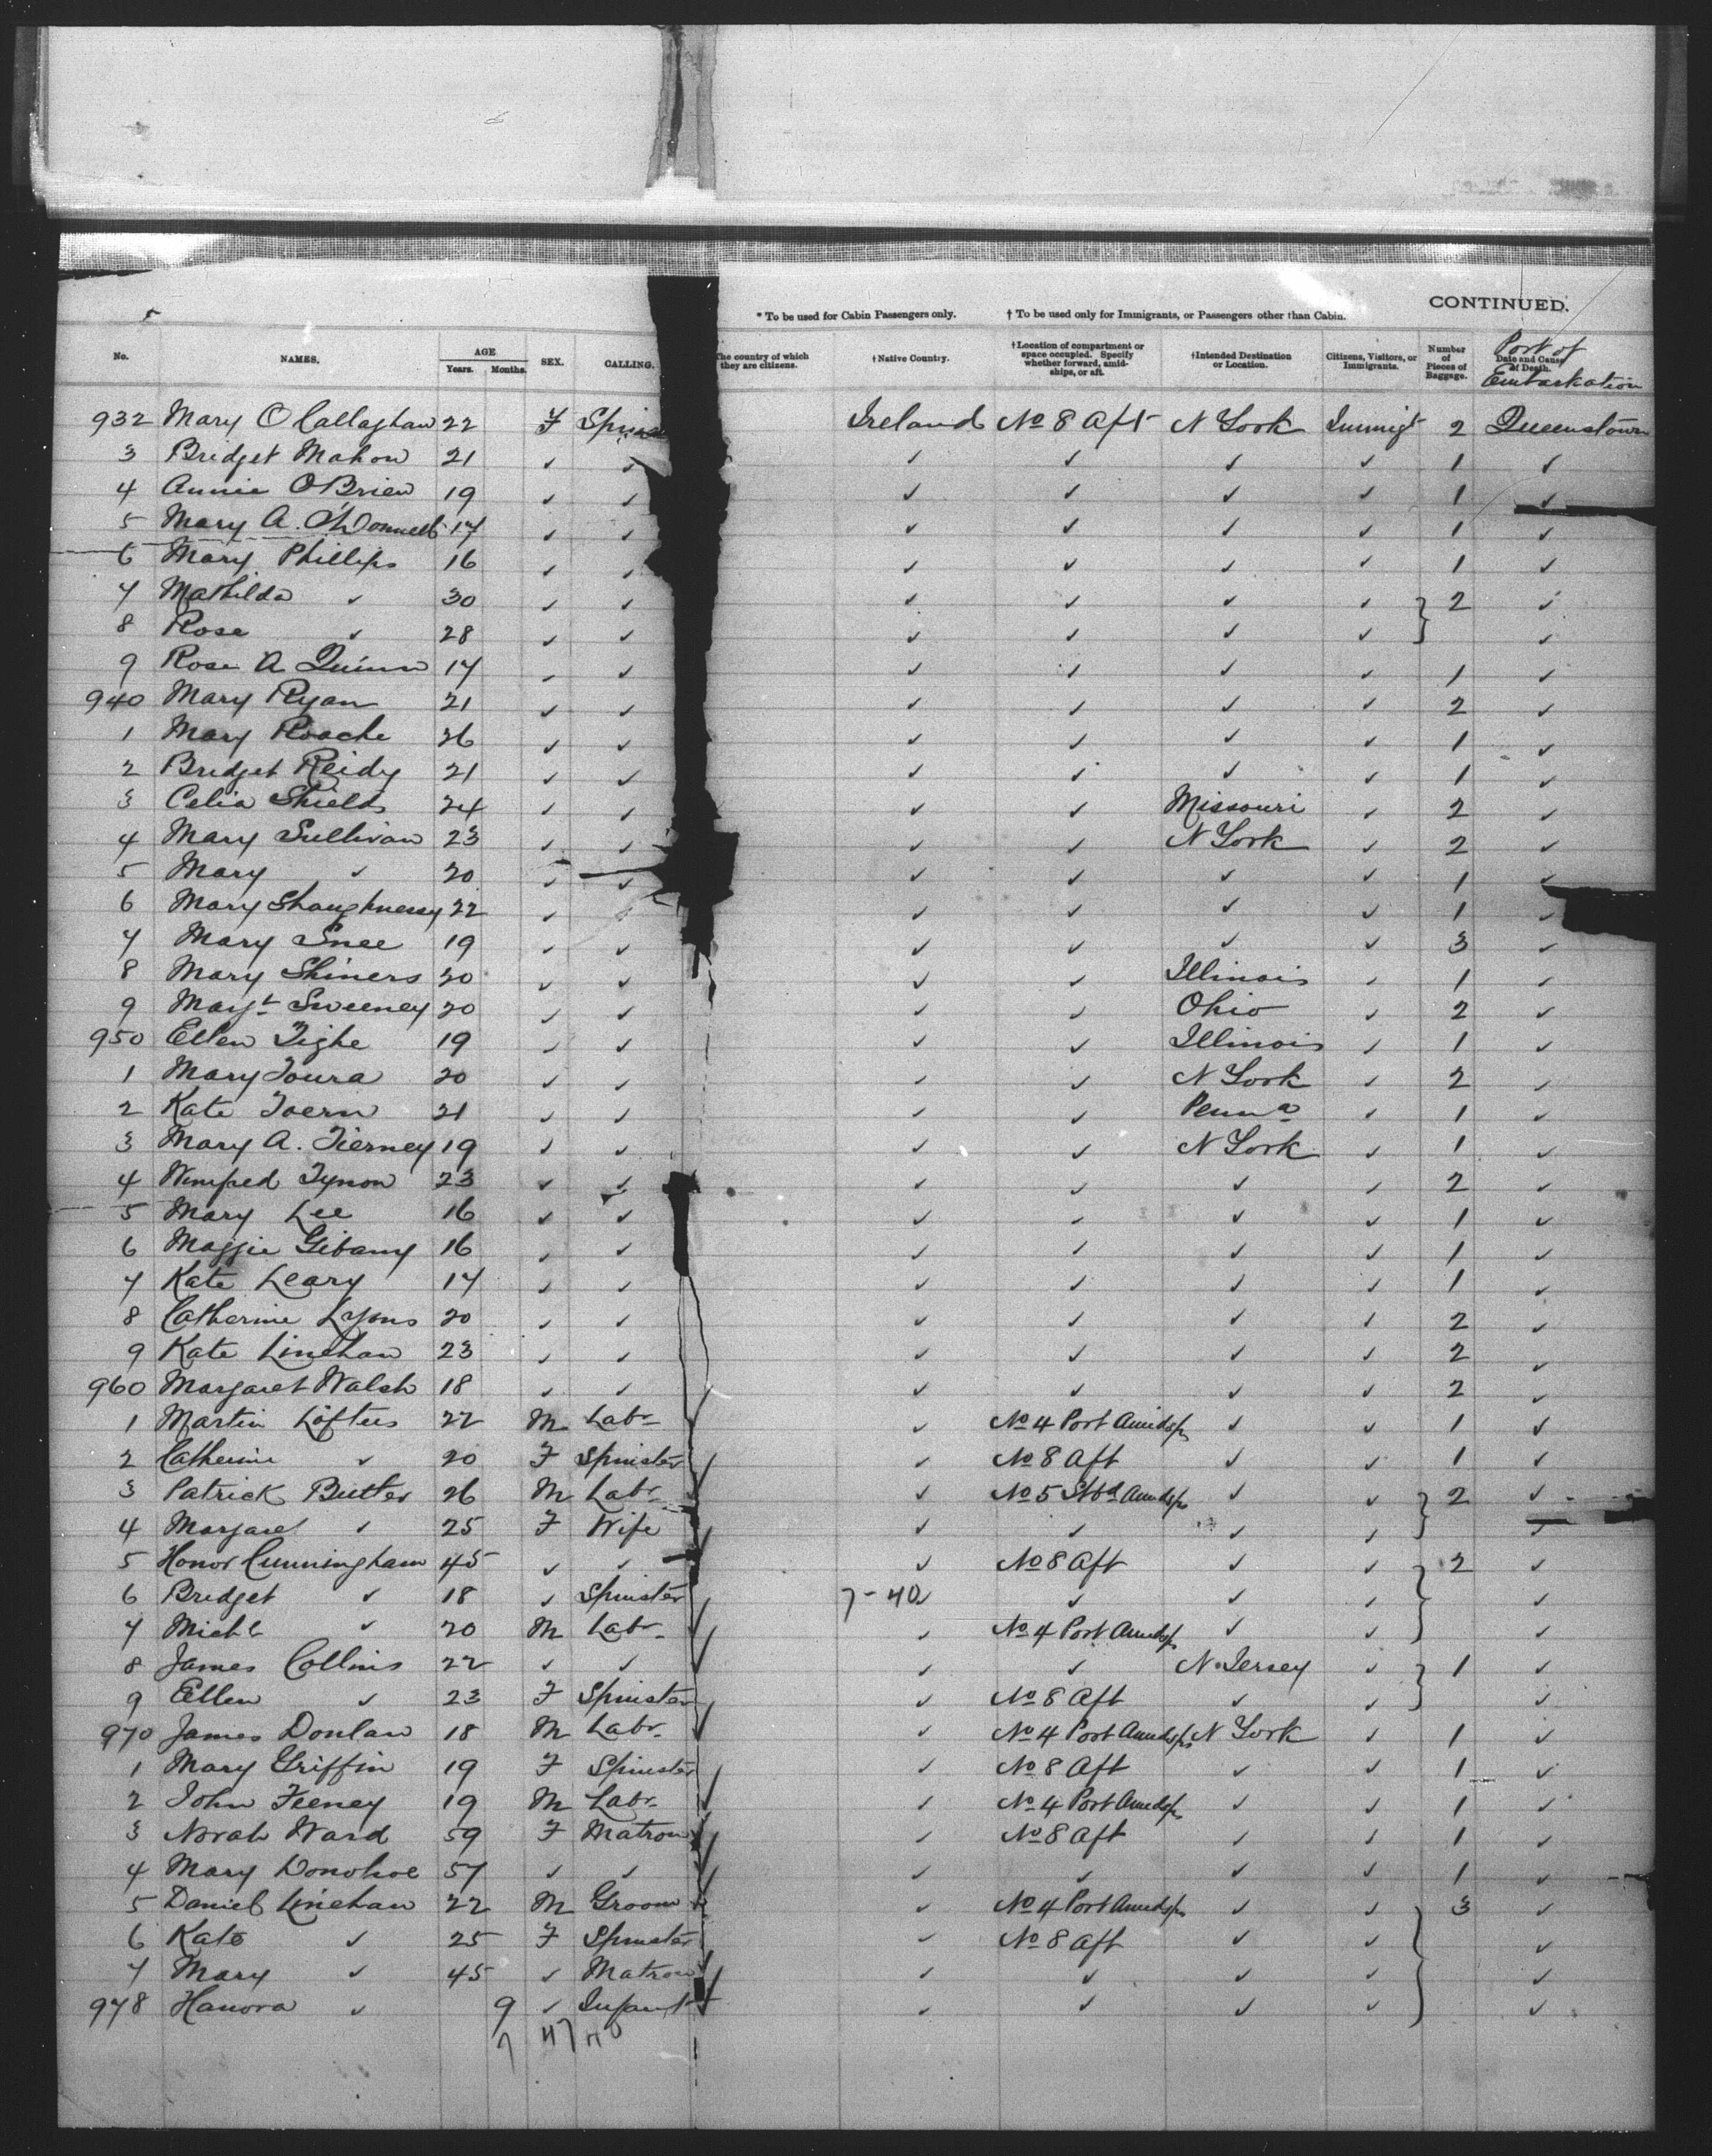 CONTINUED.
* To be used for Cabin Passengers only. † To be used only for Immigrants, or Passengers other than Cabin.
No. NAMES. AGE Years. Months. SEX. CALLING. The country of which they are citizens. †Native Country. †Location of compartment or space occupied. Specify whether forward, amidships, or aft. †Intended Destination or Location. Citizens, Visitors, or Immigrants. Number of Pieces of Baggage. Date and Cause of Death. Port of Embarkation
932 Mary O Callaghan 22 F Ireland No 8 Aft N York Immigt 2 Queenstown
3 Bridget Mahon 21 ✓ ✓ ✓ ✓ ✓ ✓ 1 ✓
4 Annie O'Brien 19 ✓ ✓ ✓ ✓ ✓ ✓ 1 ✓
5 Mary A. O'Donnell 17 ✓ ✓ ✓ ✓ ✓ ✓ 1 ✓
6 Mary Phillips 16 ✓ ✓ ✓ ✓ ✓ ✓ 1 ✓
7 Mathilda ✓ 30 ✓ ✓ ✓ ✓ ✓ ✓ } 2 ✓
8 Rose ✓ 28 ✓ ✓ ✓ ✓ ✓ ✓ ✓
9 Rose A Quinn 17 ✓ ✓ ✓ ✓ ✓ ✓ 1 ✓
940 Mary Ryan 21 ✓ ✓ ✓ ✓ ✓ ✓ 2 ✓
1 Mary Roache 26 ✓ ✓ ✓ ✓ ✓ ✓ 1 ✓
2 Bridget Reidy 21 ✓ ✓ ✓ ✓ ✓ ✓ 1 ✓
3 Celia Shields 24 ✓ ✓ ✓ ✓ Missouri ✓ 2 ✓
4 Mary Sullivan 23 ✓ ✓ ✓ ✓ N York ✓ 2 ✓
5 Mary ✓ 20 ✓ ✓ ✓ ✓ ✓ ✓ 1 ✓
6 Mary Shaughnessy 22 ✓ ✓ ✓ ✓ ✓ ✓ 1 ✓
7 Mary Snee 19 ✓ ✓ ✓ ✓ ✓ ✓ 3 ✓
8 Mary Shiners 20 ✓ ✓ ✓ ✓ Illinois ✓ 1 ✓
9 Margt Sweeney 20 ✓ ✓ ✓ ✓ Ohio ✓ 2 ✓
950 Ellen Tighe 19 ✓ ✓ ✓ ✓ Illinois ✓ 1 ✓
1 Mary Toura 20 ✓ ✓ ✓ ✓ N York ✓ 2 ✓
2 Kate Toern 21 ✓ ✓ ✓ ✓ Penna ✓ 1 ✓
3 Mary A. Tierney 19 ✓ ✓ ✓ ✓ N York ✓ 1 ✓
4 Winifred Tynon 23 ✓ ✓ ✓ ✓ ✓ ✓ 2 ✓
5 Mary Lee 16 ✓ ✓ ✓ ✓ ✓ ✓ 1 ✓
6 Maggie 16 ✓ ✓ ✓ ✓ ✓ ✓ 1 ✓
7 Kate Leary 17 ✓ ✓ ✓ ✓ ✓ ✓ 1 ✓
8 Catherine Lyons 20 ✓ ✓ ✓ ✓ ✓ ✓ 2 ✓
9 Kate Linehan 23 ✓ ✓ ✓ ✓ ✓ ✓ 2 ✓
960 Margaret Walsh 18 ✓ ✓ ✓ ✓ ✓ ✓ 2 ✓
1 Martin Loftus 22 M Labr ✓ No 4 Port Amidsps ✓ ✓ 1 ✓
2 Catherine ✓ 20 F Spinster ✓ No 8 Aft ✓ ✓ 1 ✓
3 Patrick Butler 26 M Labr ✓ No 5 Stbd Amidsps ✓ ✓ } 2 ✓
4 Margaret ✓ 25 F Wife ✓ ✓ ✓ ✓ ✓
5 Honor Cunningham 45 ✓ ✓ ✓ No 8 Aft ✓ ✓ } 2 ✓
6 Bridget ✓ 18 ✓ Spinster 7-40 ✓ ✓ ✓ ✓ ✓
7 Michl ✓ 20 M Labr ✓ No 4 Port Amidsps ✓ ✓ ✓
8 James Collins 22 ✓ ✓ ✓ ✓ N. Jersey ✓ } 1 ✓
9 Ellen ✓ 23 F Spinster ✓ No 8 Aft ✓ ✓ ✓
970 James Donlan 18 M Labr ✓ No 4 Port Amidsps N York ✓ 1 ✓
1 Mary Griffin 19 F Spinster ✓ No 8 Aft ✓ ✓ 1 ✓
2 John Feeney 19 M Labr ✓ No 4 Port Amidsps ✓ ✓ 1 ✓
3 Norah Ward 59 F Matron ✓ No 8 Aft ✓ ✓ 1 ✓
4 Mary Donohoe 57 ✓ ✓ ✓ ✓ ✓ ✓ 1 ✓
5 Daniel Linehan 22 M Groom ✓ No 4 Port Amidsps ✓ ✓ } 3 ✓
6 Kate ✓ 25 F Spinster ✓ No 8 Aft ✓ ✓ ✓
7 Mary ✓ 45 ✓ Matron ✓ ✓ ✓ ✓ ✓
978 Hanora ✓ 9 ✓ Infant ✓ ✓ ✓ ✓ ✓
7 47